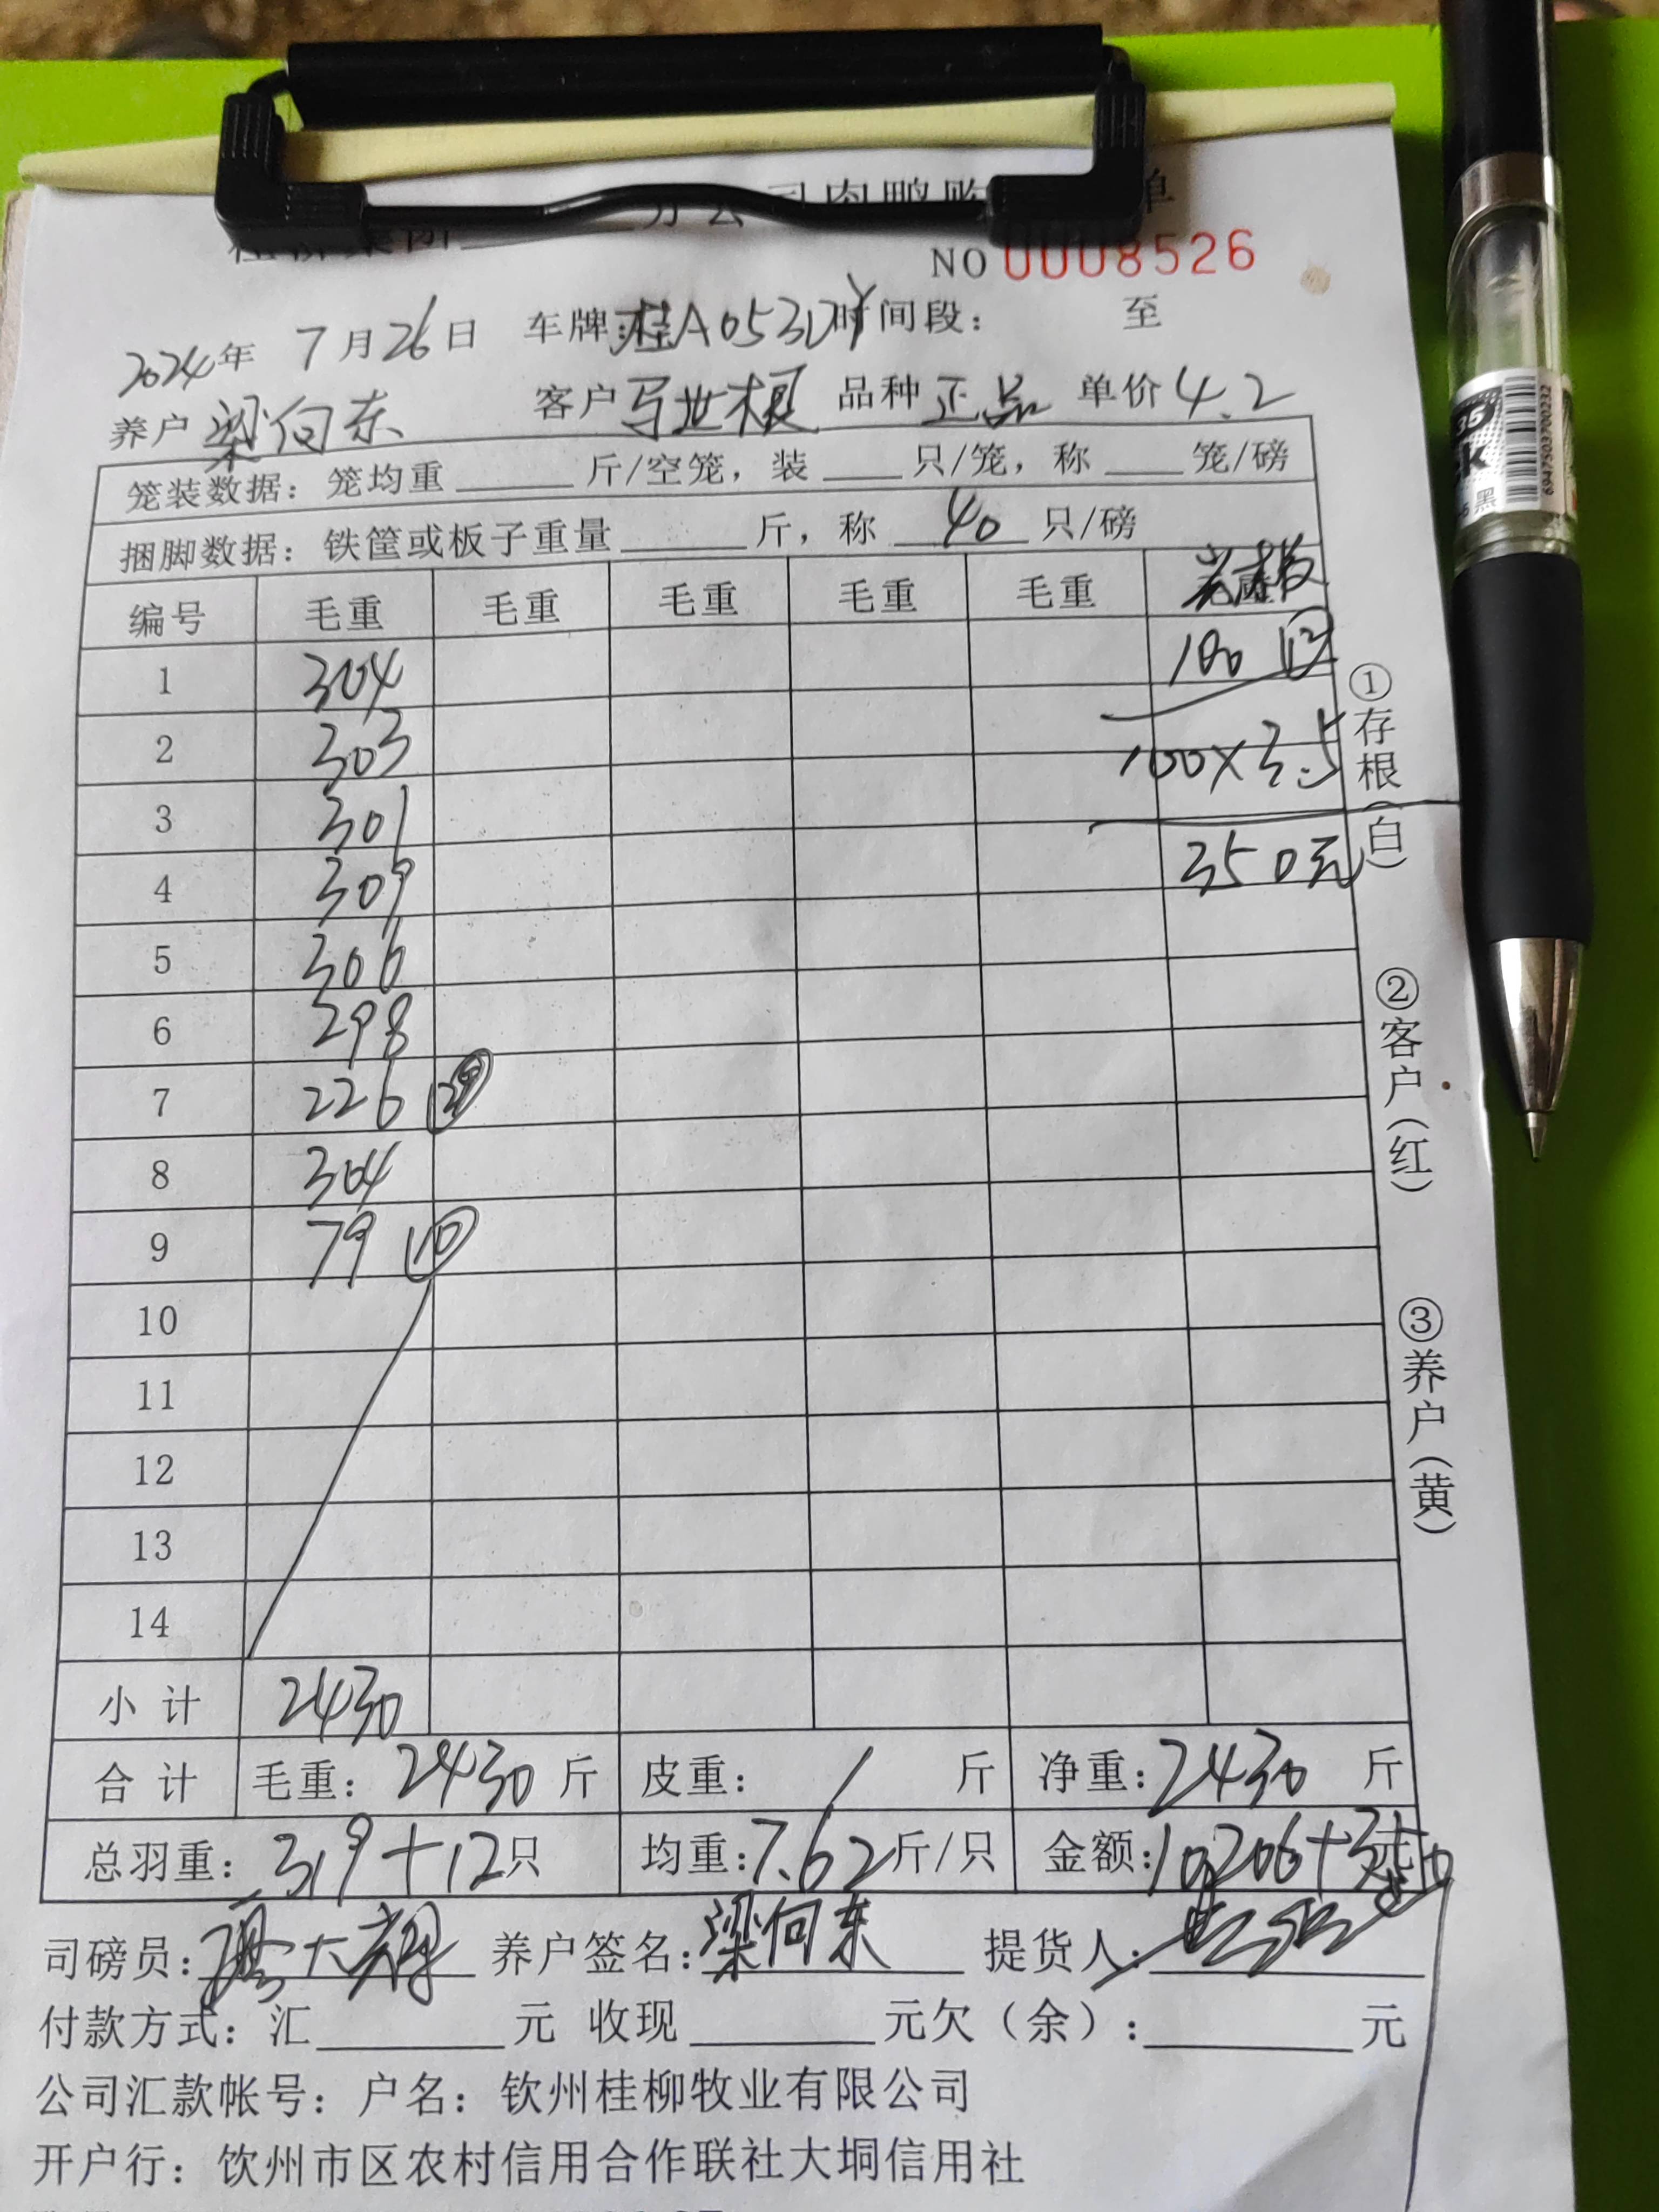 分公司肉鸭购 单
NO 0008526
2024年 7月26日 车牌:桂A053DY 时间段: 至
养户 梁向东 客户 马业根 品种 正品 单价 4.2
笼装数据: 笼均重 斤/空笼, 装 只/笼, 称 笼/磅
捆脚数据: 铁筐或板子重量 斤, 称 40 只/磅
编号 毛重 毛重 毛重 毛重 毛重
1 304 100 ⑫
2 303 100×3.5
3 301
4 309 350元
5 306
6 298
7 226
8 304
9 79 ⑩
10
11
12
13
14
小计 2430
合计 毛重: 2430 斤 皮重: / 斤 净重: 2430 斤
总羽重: 319+12只 均重: 7.62斤/只 金额: 10206+350
司磅员: 养户签名: 梁向东 提货人:
付款方式: 汇 元 收现 元欠(余): 元
公司汇款帐号: 户名: 钦州桂柳牧业有限公司
开户行: 钦州市区农村信用合作联社大垌信用社
①存根(白)
②客户(红)
③养户(黄)
6947503700232
黑